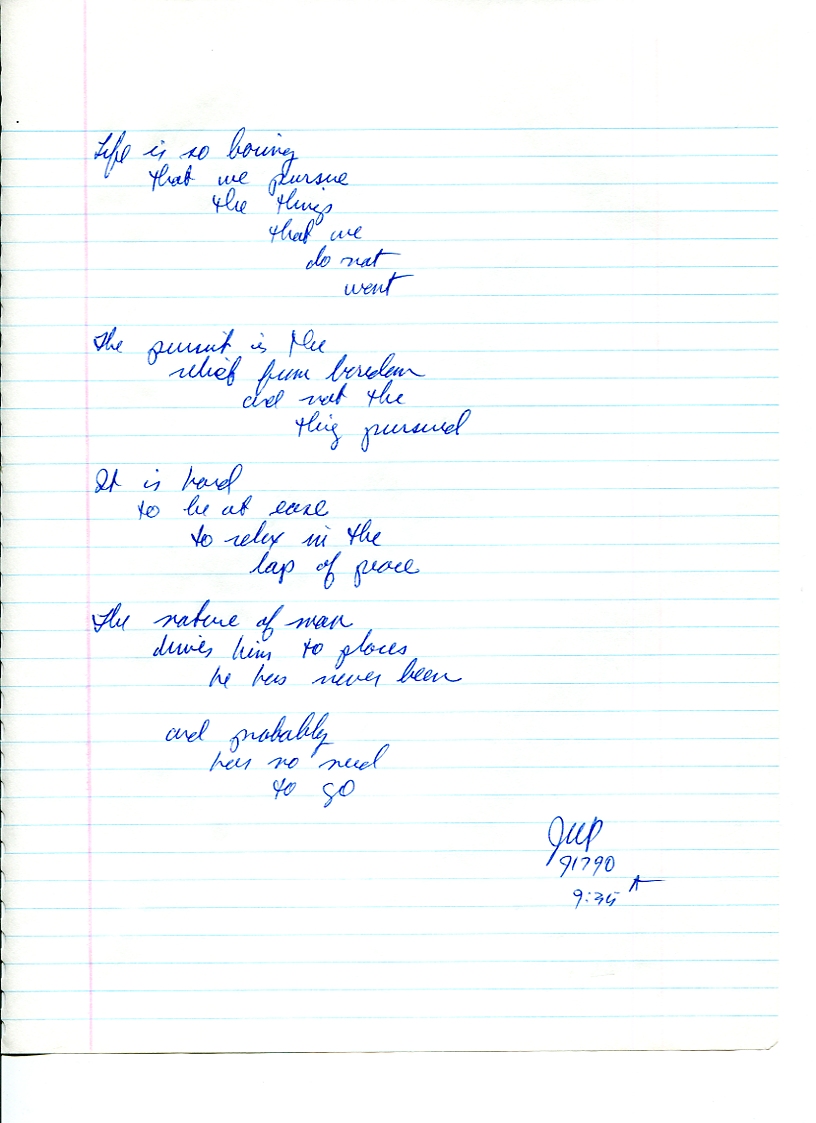 Life is so boring
that we pursue
the things
that we
do not
want
The pursuit is the
relief from boredom
and not the
thing pursued
It is hard
to be at ease
to relax in the
lap of peace
The nature of man
drives him to places
he has never been
and probably
has no need
to go
JWP
91790
9:35 A